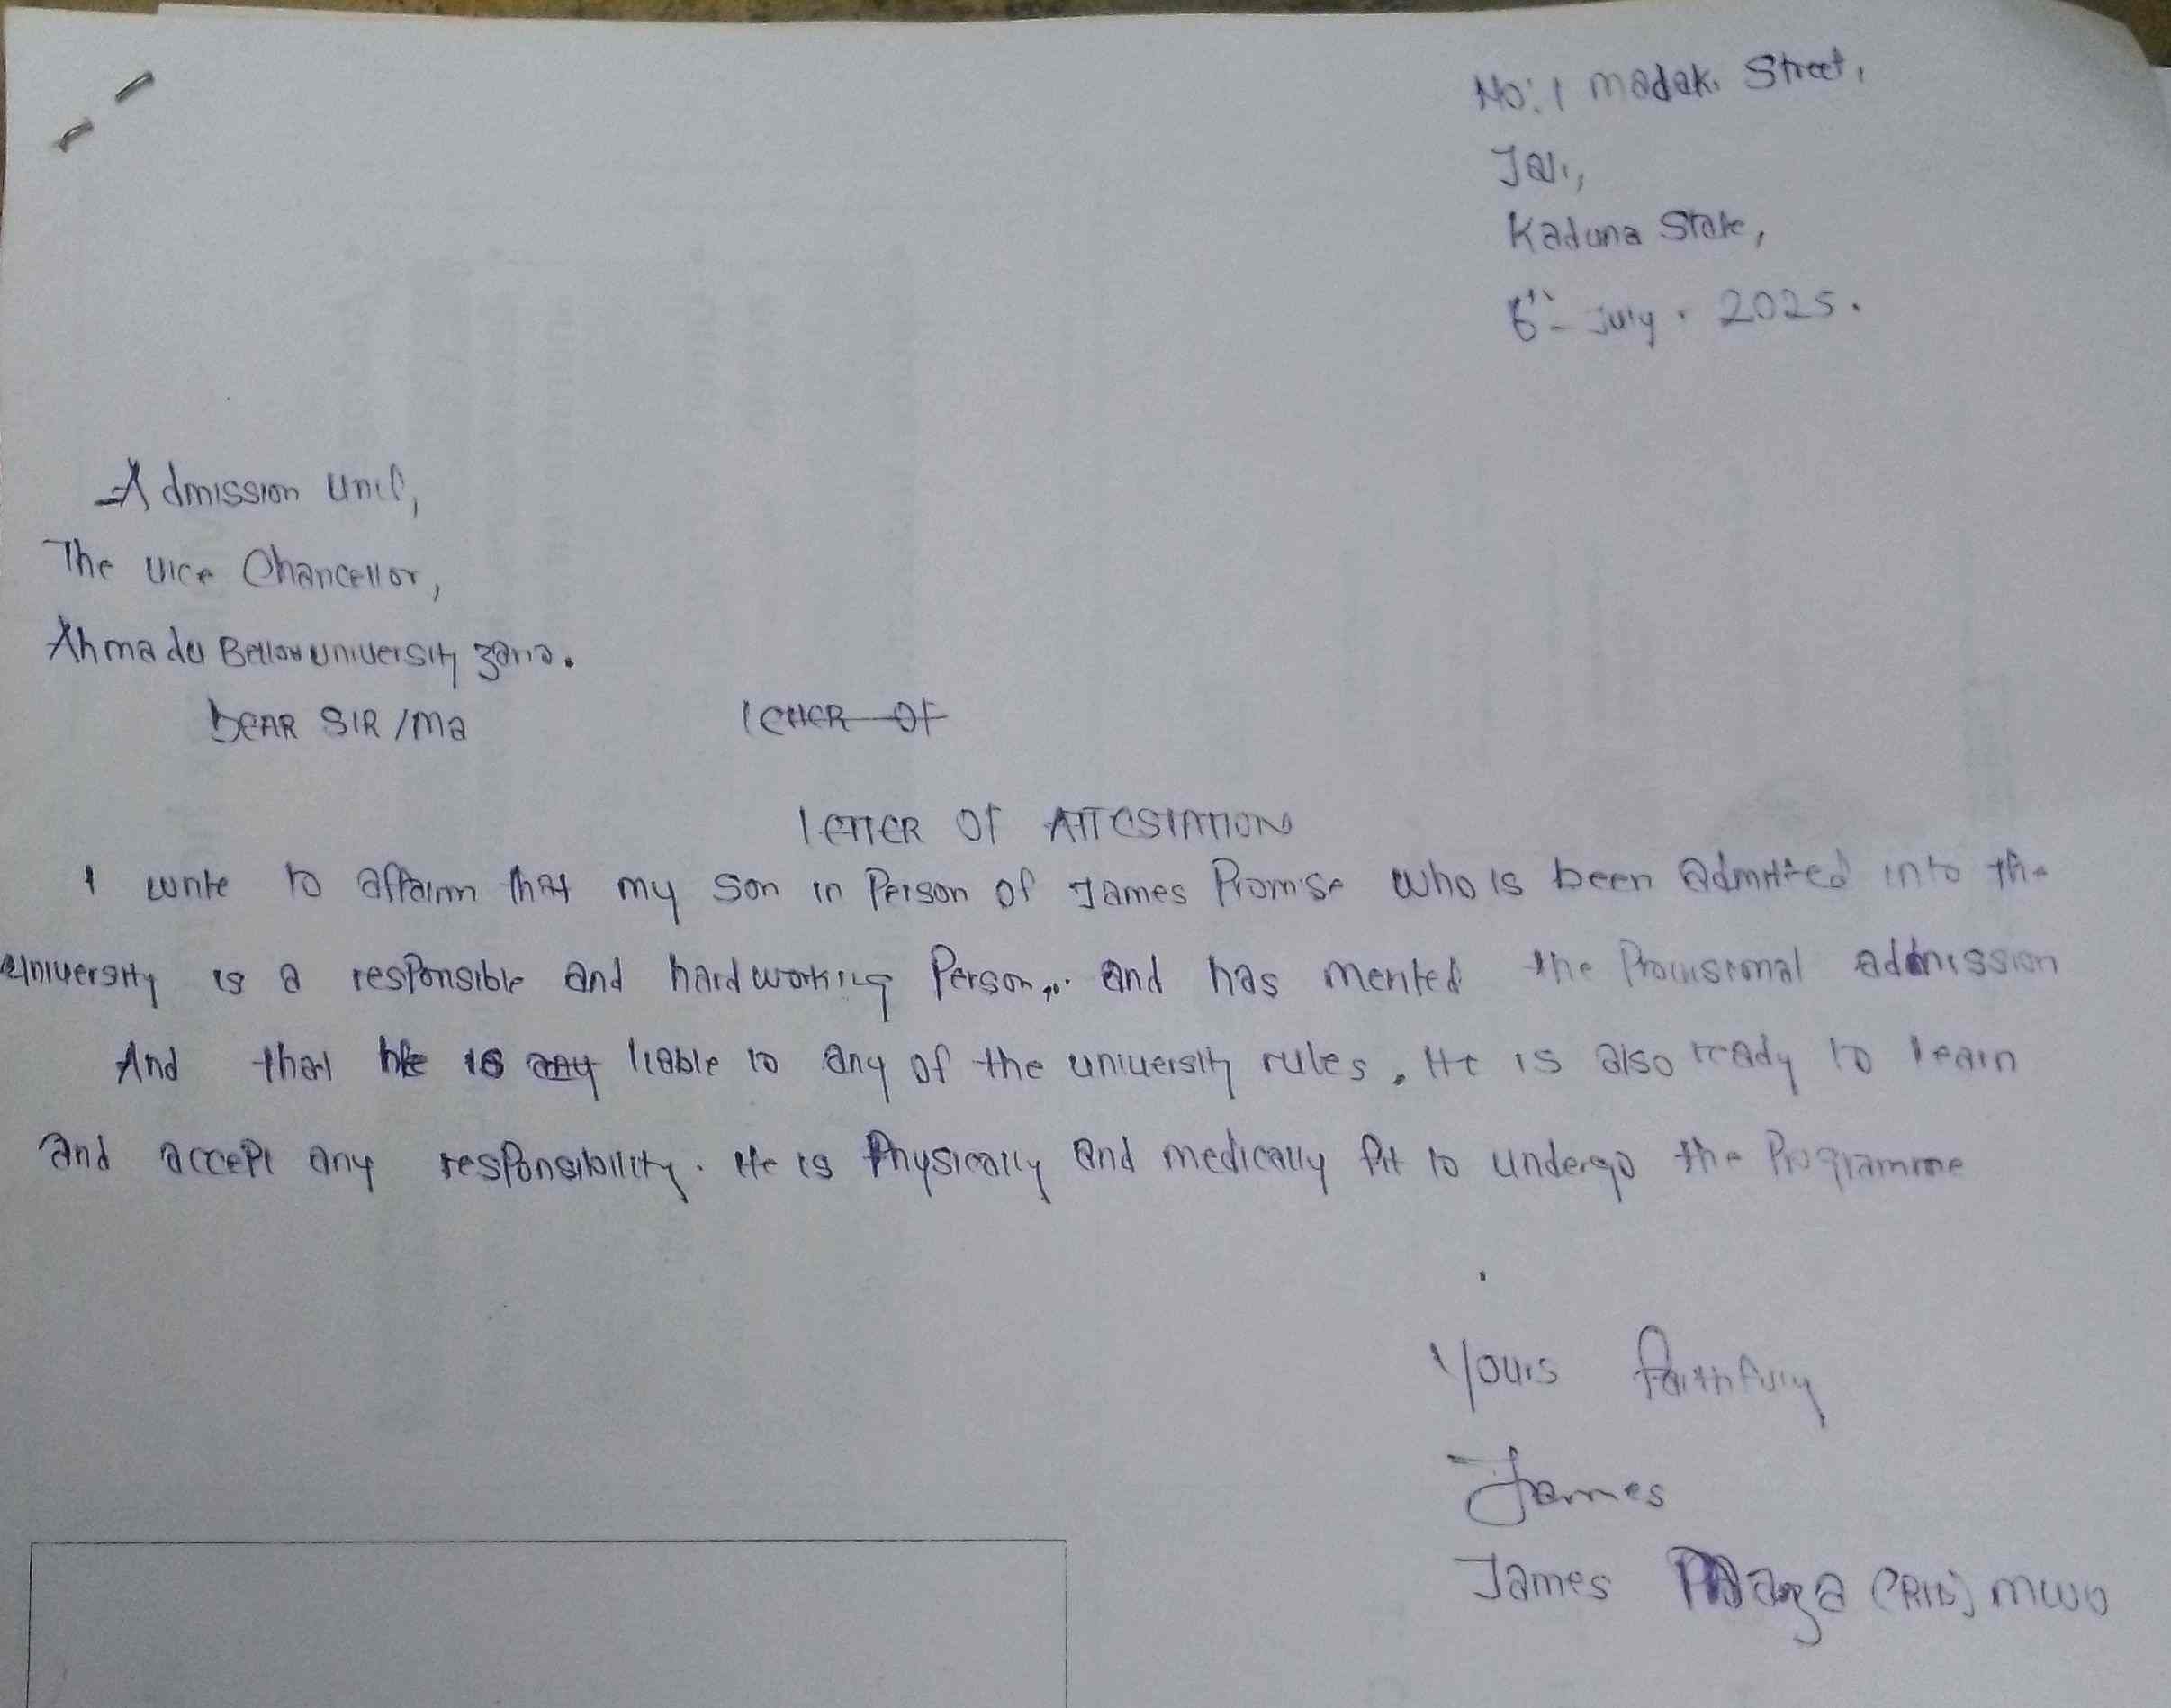 No: 1 madaki Street,
Jaji,
Kaduna State,
6th July. 2025.
Admission Unit,
The vice Chancellor,
Ahmadu Bello university zaria.
DEAR SIR/ma
letter of
LETTER OF ATTESTATION
I write to affairm that my son in Person of James Promise who is been admitted into the
university is a responsible and hardworking Person. and has merited the Provisional admission
And that he is any liable to any of the university rules. He is also ready to learn
and accept any responsibility. He is Physically and medically fit to undergo the Programme
Yours faithfully
James
James (RTD) MWO